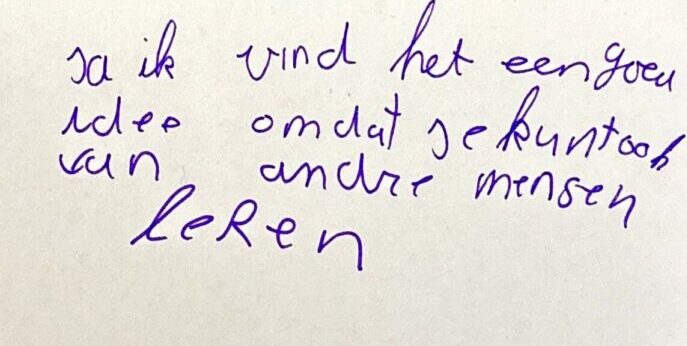 ja ik vind het een goeu
idee omdat je kunt ook
van andre mensen
leren